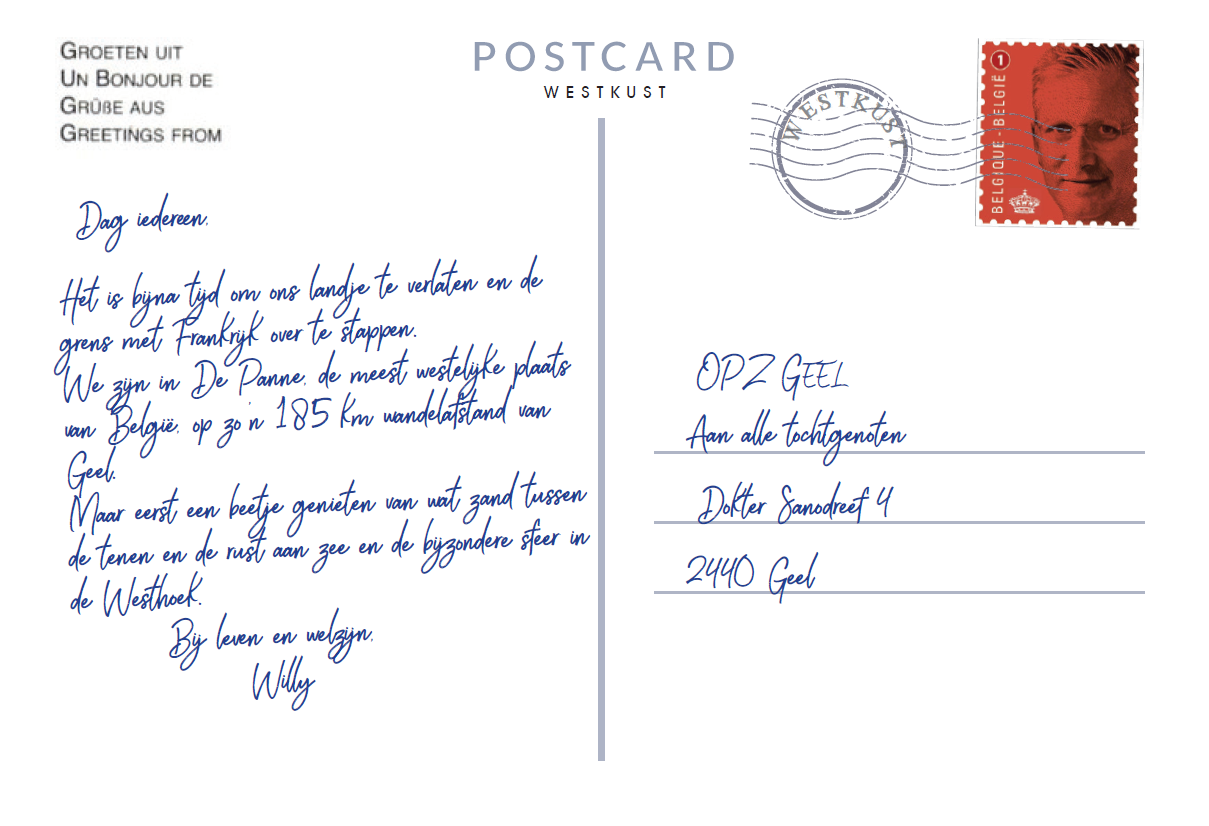 GROETEN UIT
UN BONJOUR DE
GRÜßE AUS
GREETINGS FROM
POSTCARD
WESTKUST
WESTKUST
1
BELGIQUE - BELGIË
Dag iedereen,
Het is bijna tijd om ons landje te verlaten en de
grens met Frankrijk over te stappen.
We zijn in De Panne, de meest westelijke plaats
van België, op zo'n 185 km wandelafstand van
Geel.
Maar eerst een beetje genieten van wat zand tussen
de tenen en de rust aan zee en de bijzondere sfeer in
de Westhoek.
Bij leven en welzijn,
Willy
OPZ GEEL
Aan alle tochtgenoten
Dokter Sanodreef 4
2440 Geel